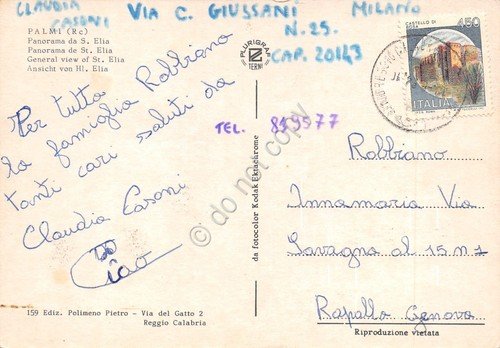 CLAUDIA
CASONI
VIA C. GIUSSANI
N. 25.
MILANO
CAP. 20143
PALMI (Rc)
Panorama da S. Elia
Panorama de St. Elia
General view of St. Elia
Ansicht von Hl. Elia
PLURIGRAF
TERNI
CASTELLO DI
450
ITALIA
TEL. 819577
Per tutta
la famiglia Robbiano
tanti cari saluti da
Claudia Casoni
Ciao
da fotocolor Kodak Ektachrome
do not copy
Robbiano
Innamaria Via
Lavagna al 15 n 1
Rapallo Genova
159 Ediz. Polimeno Pietro - Via del Gatto 2
Reggio Calabria
Riproduzione vietata